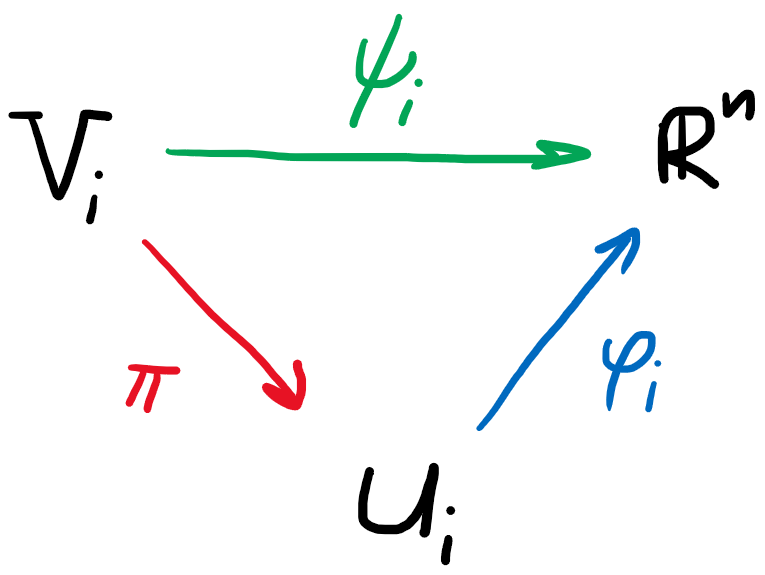 ψᵢ
Vᵢ ℝⁿ
π φᵢ
Uᵢ